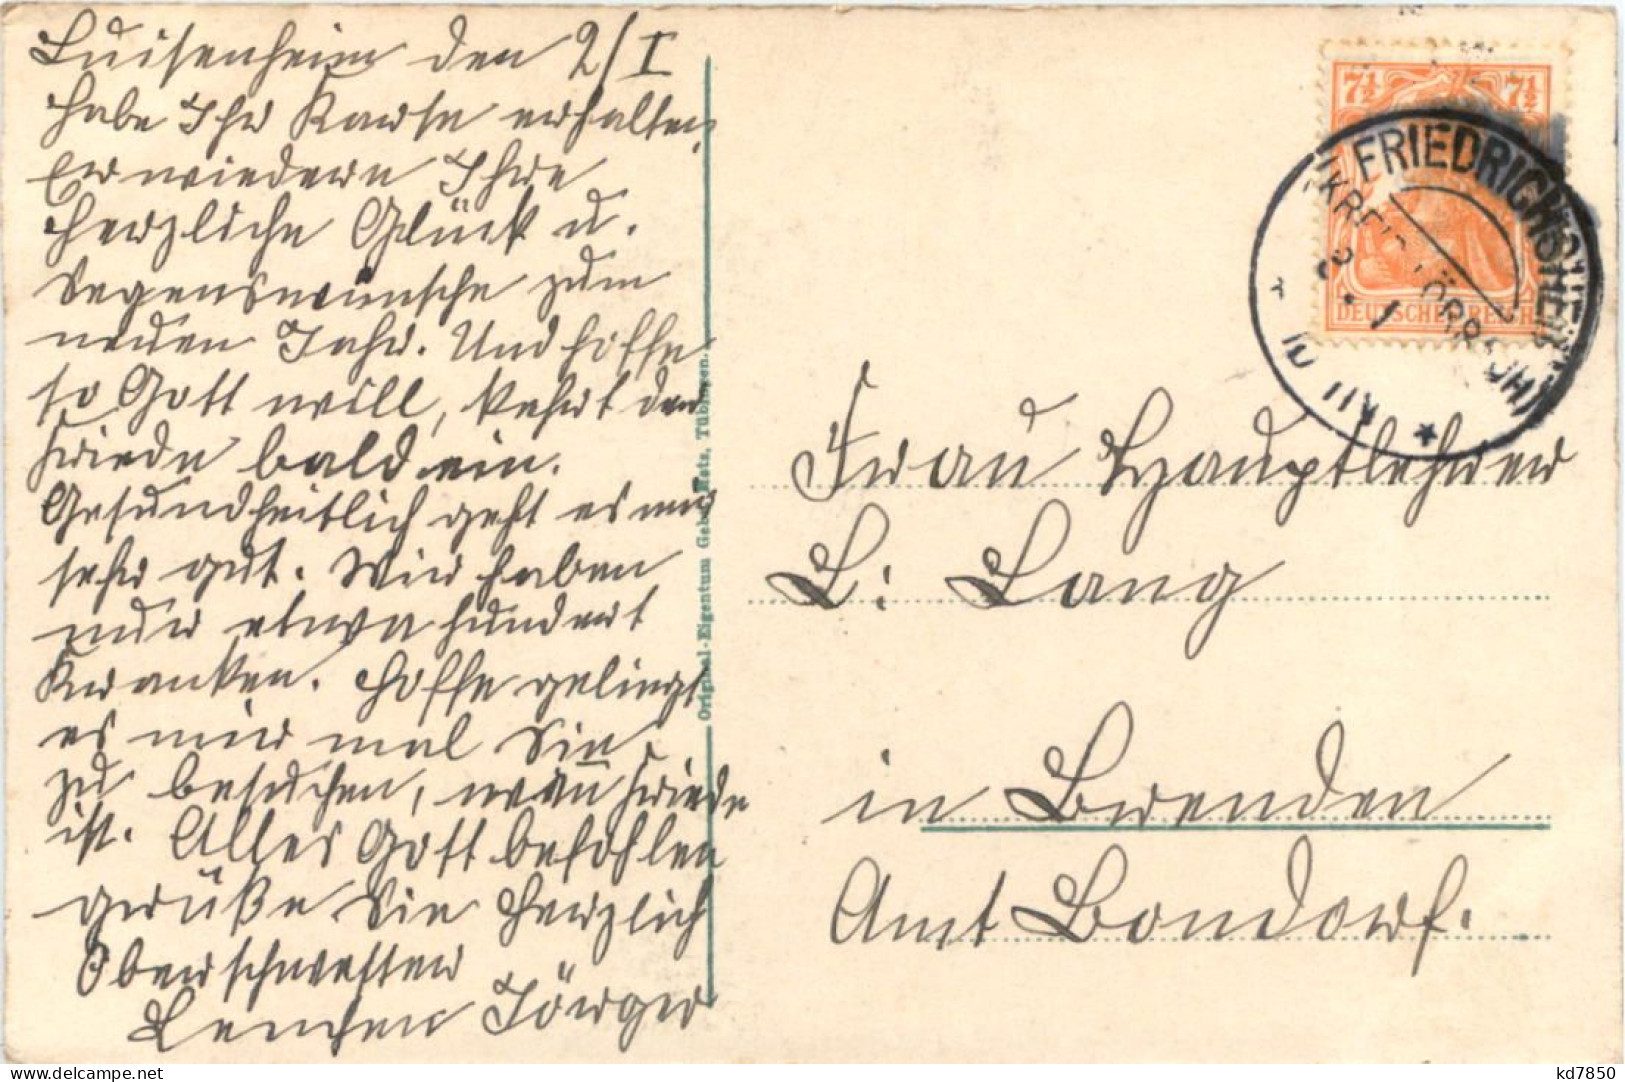 Luisenheim den 2/I
Habe Ihr Karte erhalten,
Erwiedere Ihre
herzliche Glück u.
Segenswünsche zum
neuen Jahr. Und hoffe
so Gott will, kehrt der
Friede bald ein.
Gesundheitlich geht es mir
sehr gut. Wir haben
nur etwa hundert
Kranken. Hoffe gelingt
es mir mal Sie
zu besuchen, wen Friede
ist. Alles Gott befohlen
grüße Sie herzlich
Oberschwester
Lenchen Jörger
Original-Eigentum Gebr. Metz, Tübingen.
7½ 7½
DEUTSCHES REICH
FRIEDRICHSHEIM
(KREIS LÖRRACH)
2. 1
Frau Hauptlehrer
L: Lang
in Brenden
Amt Bondorf.
kd7850